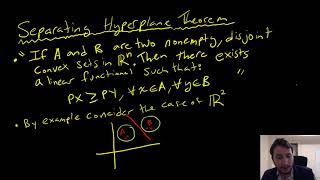 Separating Hyperplane Theorem
• "If A and B are two nonempty, disjoint
convex sets in ℝⁿ. Then there exists
a linear functional such that:
px ≥ py, ∀x∈A, ∀y∈B "
• By example consider the case of ℝ²
A B